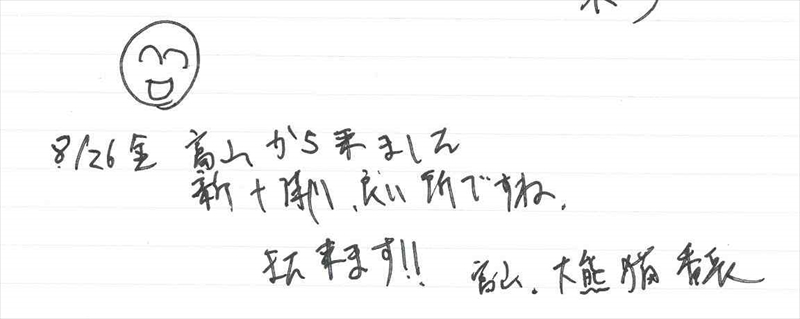 8/26金 高山から来ました
新十津川、良い所ですね。
また来ます!!
高山、大熊猫